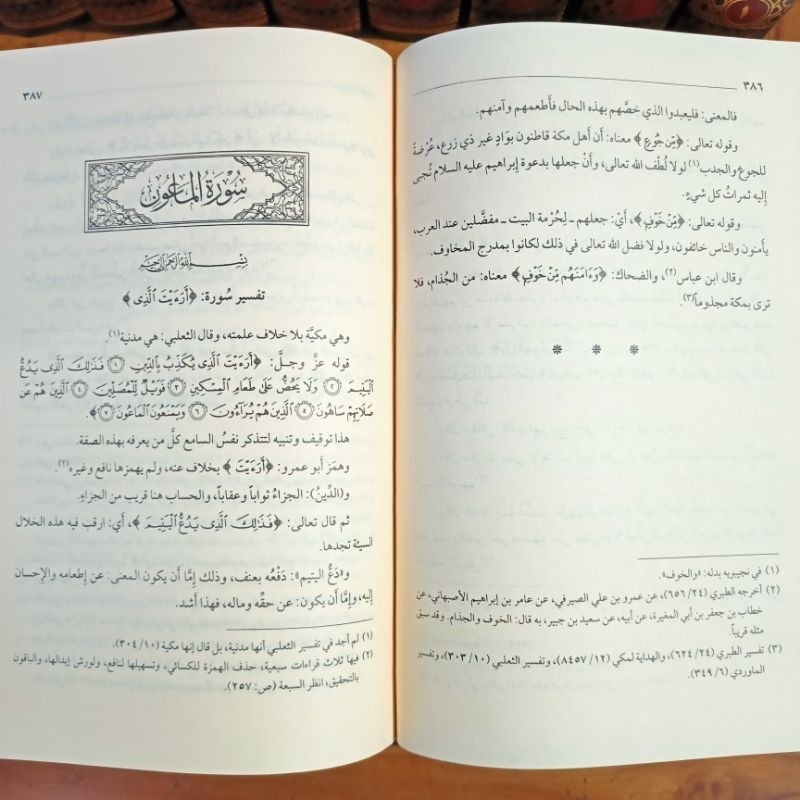 ٣٨٦
فالمعنى: فليعبدوا الذي خصَّهم بهذه الحال فأَطعمهم وآمنهم.
وقوله تعالى: ﴿مِّن جُوعٍ﴾ معناه: أن أهل مكة قاطنون بوَادٍ غير ذي زرع، عُرْضةً
للجوع والجدب(١) لولا لُطْف الله تعالى، وأنْ جعلها بدعوة إبراهيم عليه السلام تُجبى
إليه ثمراتُ كل شيءٍ.
وقوله تعالى: ﴿مِّنْ خَوْفٍ﴾، أَيْ: جعلهم ـ لِحُرْمة البيت ـ مفضَّلين عند العرب،
يأمنون والناس خائفون، ولولا فضل الله تعالى في ذلك لكانوا بمدرج المخاوف.
وقال ابن عباس(٢)، والضحاك: ﴿وَءَامَنَهُم مِّنْ خَوْفٍ﴾ معناه: من الجُذام، فلا
ترى بمكة مجذوماً(٣).
* * *
(١) في نجيبويه بدله: «والخوف».
(٢) أخرجه الطبري (٢٤/ ٦٥٦)، عن عمرو بن علي الصيرفي، عن عامر بن إبراهيم الأصبهاني، عن
خطاب بن جعفر بن أبي المغيرة، عن أبيه، عن سعيد بن جبير، به قال: الخوف والجذام. وقد سبق
مثله قريباً.
(٣) تفسير الطبري (٢٤/ ٦٢٤)، والهداية لمكي (١٢/ ٨٤٥٧)، وتفسير الثعلبي (١٠/ ٣٠٣)، وتفسير
الماوردي (٦/ ٣٤٩).
٣٨٧
سُورَةُ المَاعُونِ
بِسْمِ اللهِ الرَّحْمَنِ الرَّحِيمِ
تفسير سُورة: ﴿أَرَءَيْتَ الَّذِى﴾
وهي مكيَّة بلا خلاف علمته، وقال الثعلبي: هي مدنية(١).
قوله عزَّ وجلَّ: ﴿أَرَءَيْتَ الَّذِى يُكَذِّبُ بِالدِّينِ ١ فَذَالِكَ الَّذِى يَدُعُّ
الْيَتِيمَ ٢ وَلَا يَحُضُّ عَلَى طَعَامِ الْمِسْكِينِ ٣ فَوَيْلٌ لِّلْمُصَلِّينَ ٤ الَّذِينَ هُمْ عَن
صَلَاتِهِمْ سَاهُونَ ٥ الَّذِينَ هُمْ يُرَاءُونَ ٦ وَيَمْنَعُونَ الْمَاعُونَ ٧﴾.
هذا توقيف وتنبيه لتتذكر نفسُ السامع كلَّ من يعرفه بهذه الصفة.
وهمَز أَبو عمرو: ﴿أَرَءَيْتَ﴾ بخلاف عنه، ولم يهمزها نافع وغيره(٢).
و(الدِّينُ): الجزاءُ ثواباً وعقاباً، والحساب هنا قريب من الجزاءِ.
ثم قال تعالى: ﴿فَذَالِكَ الَّذِى يَدُعُّ الْيَتِيمَ﴾، أَي: ارقب فيه هذه الخلال
السيئة تجدها.
و«دَعُّ اليتيم»: دَفْعُه بعنف، وذلك إِمَّا أَن يكون المعنى: عن إطعامه والإحسان
إليه، وإِمَّا أَن يكون: عن حقِّه وماله، فهذا أَشد.
(١) لم أجد في تفسير الثعلبي أنها مدنية، بل قال إنها مكية (١٠/ ٣٠٤)
(٢) فيها ثلاث قراءات سبعية، حذف الهمزة للكسائي، وتسهيلها لنافع، ولورش إبدالها، والباقون
بالتحقيق، انظر السبعة (ص: ٢٥٧).